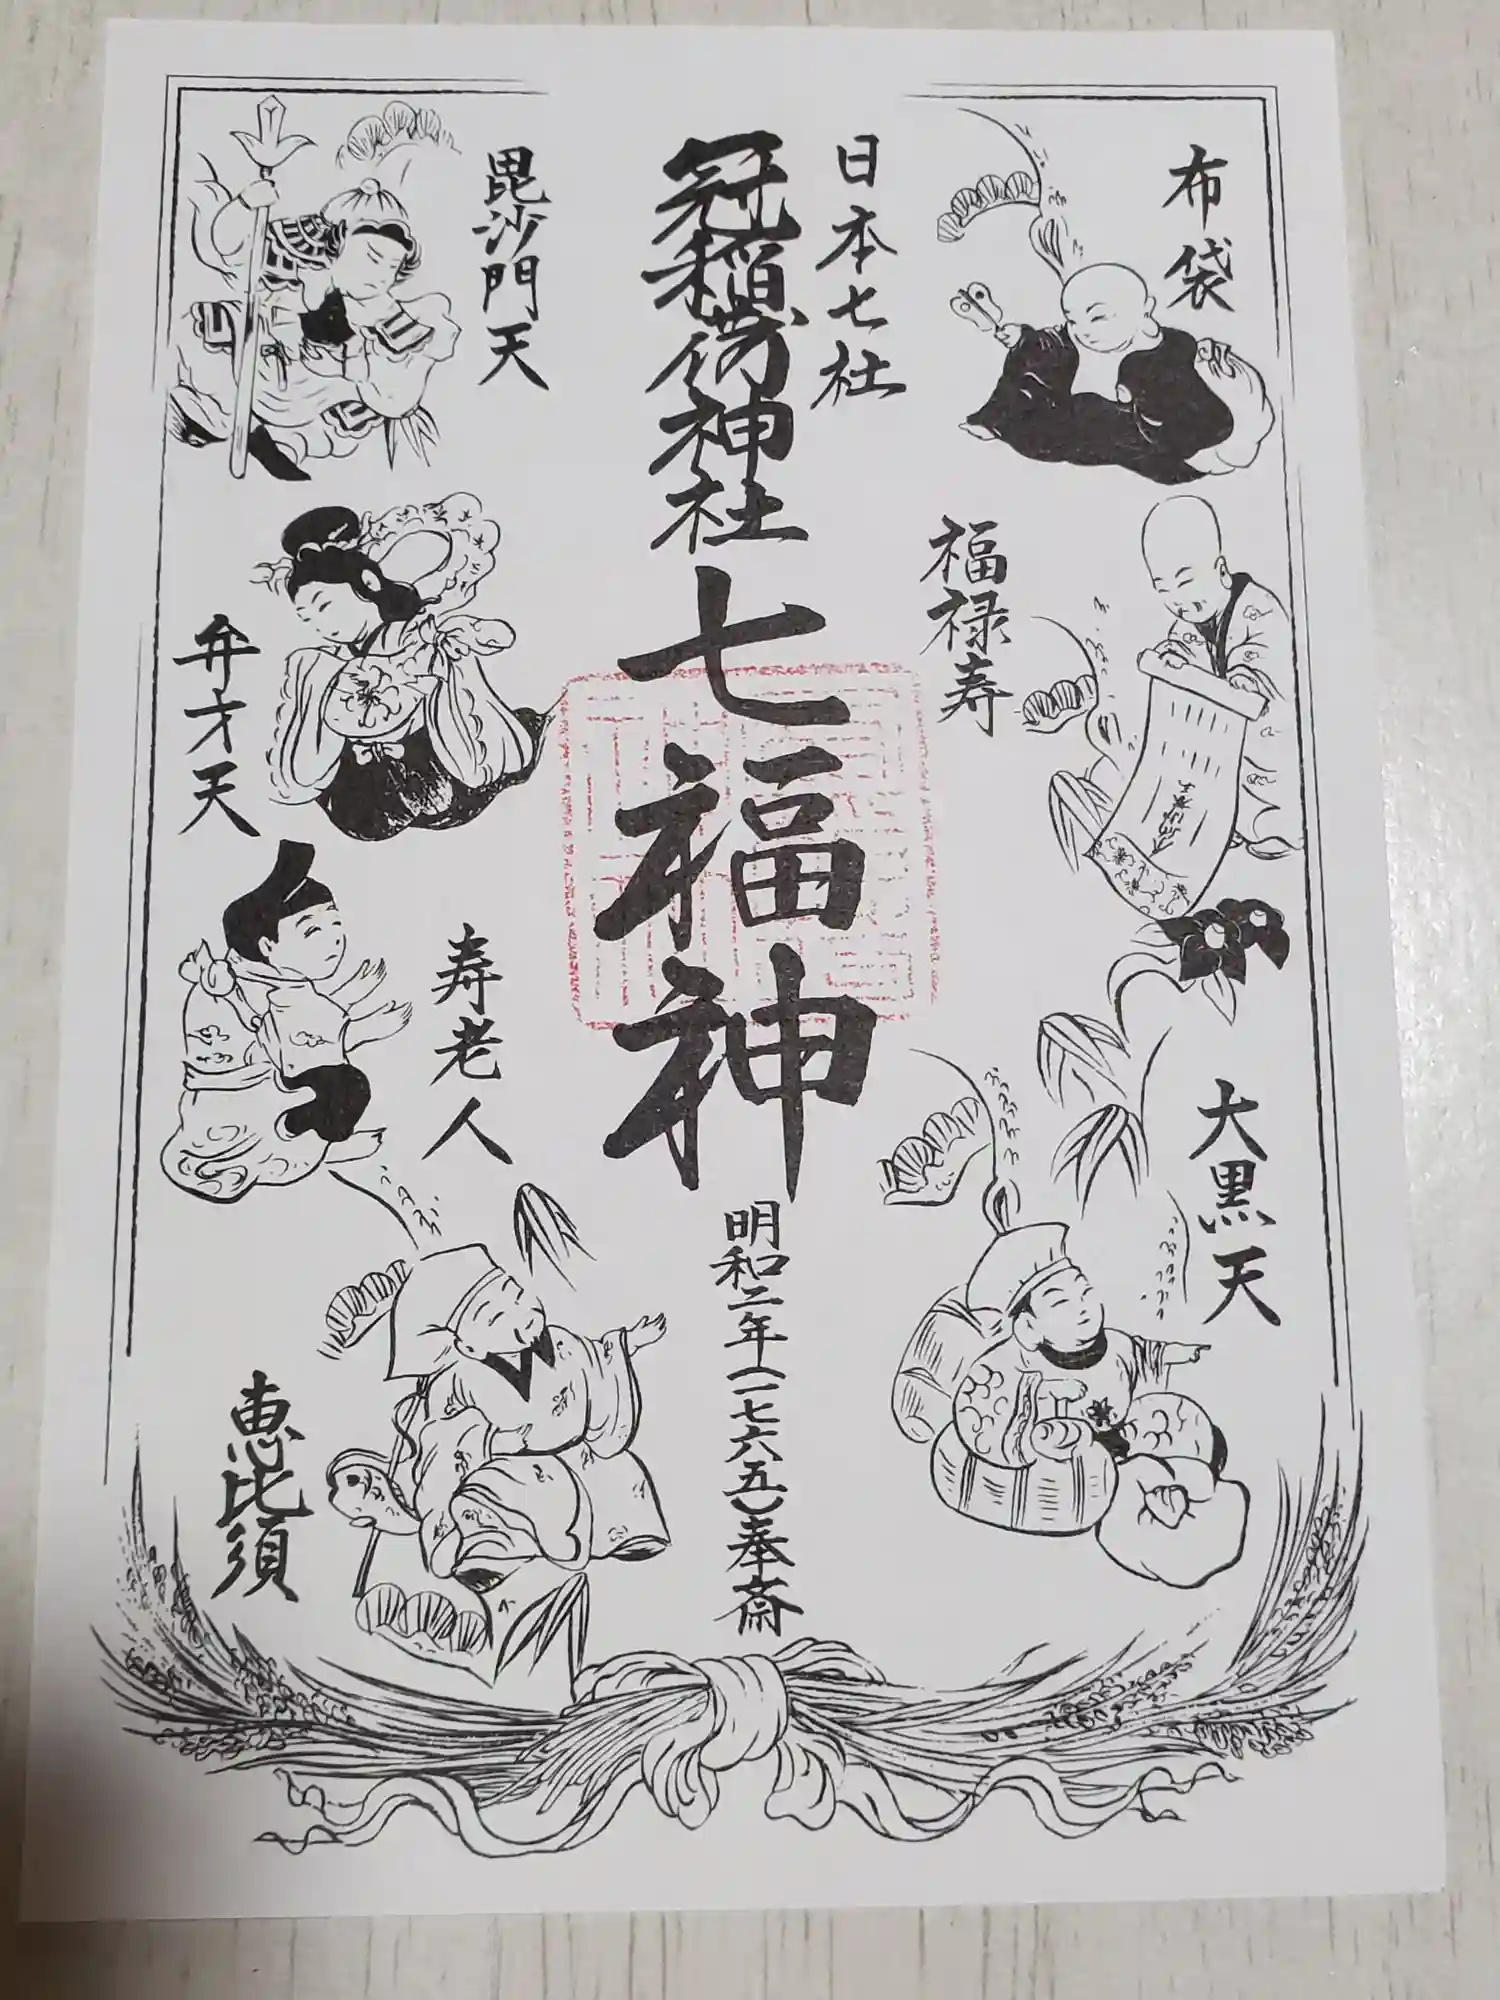 布袋
日本七社
冠稲荷神社
七福神
明和二年(一七六五)奉斎
毘沙門天
福禄寿
弁才天
寿老人
大黒天
恵比須